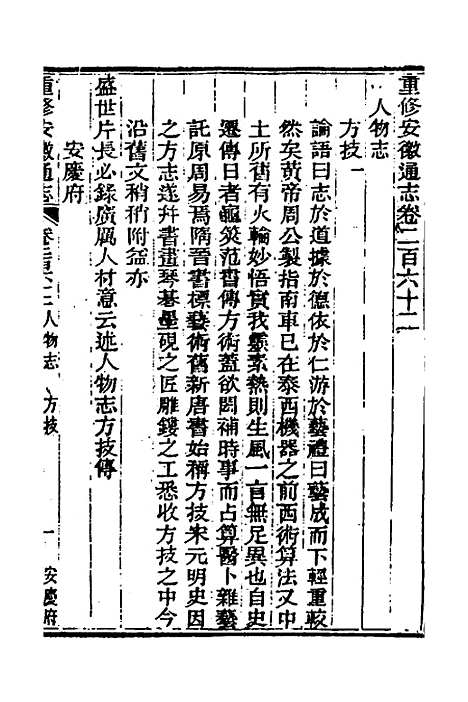 重修安徽通志卷二百六十二
人物志
方技一
論語曰志於道據於德依於仁游於藝禮曰藝成而下輕重較
然矣黃帝周公製指南車已在泰西機器之前西術算法又中
土所舊有火輪妙悟實我素熱則生風一言無足異也自史
遷傳日者龜筴范書傳方術蓋欲罔補時事而占算醫卜雜藝
託原周易焉隋晉書標藝術舊新唐書始稱方技宋元明史因
之方志遂幷書畫琴棊墨硯之匠雕鏤之工悉收方技之中今
沿舊文稍稍附益亦
盛世片長必錄廣厲人材意云述人物志方技傳
安慶府
重修安徽通志
人物志 方技
一
安慶府